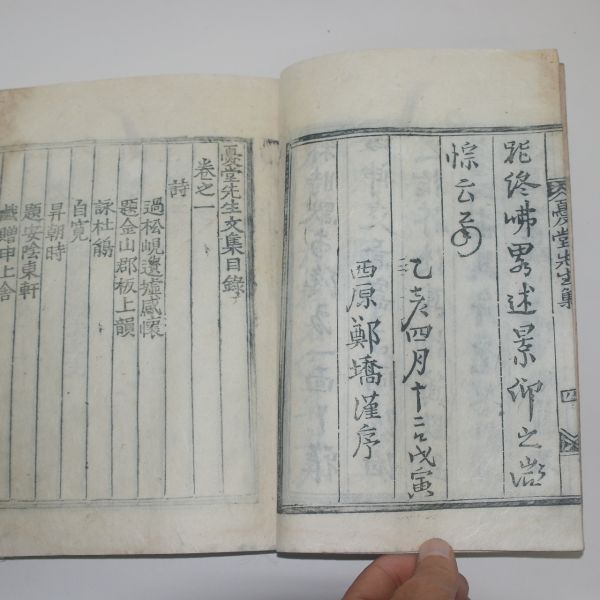 終
述景仰之
悰云爾
乙亥四月十二日戊寅
西原鄭墧謹序
憂堂先生集
四
憂堂先生文集目錄
卷之一
詩
過松峴遺墟感懷
題金山郡板上韻
詠杜鵑
自寬
昇朝時
題安陰東軒
戱贈申上舍